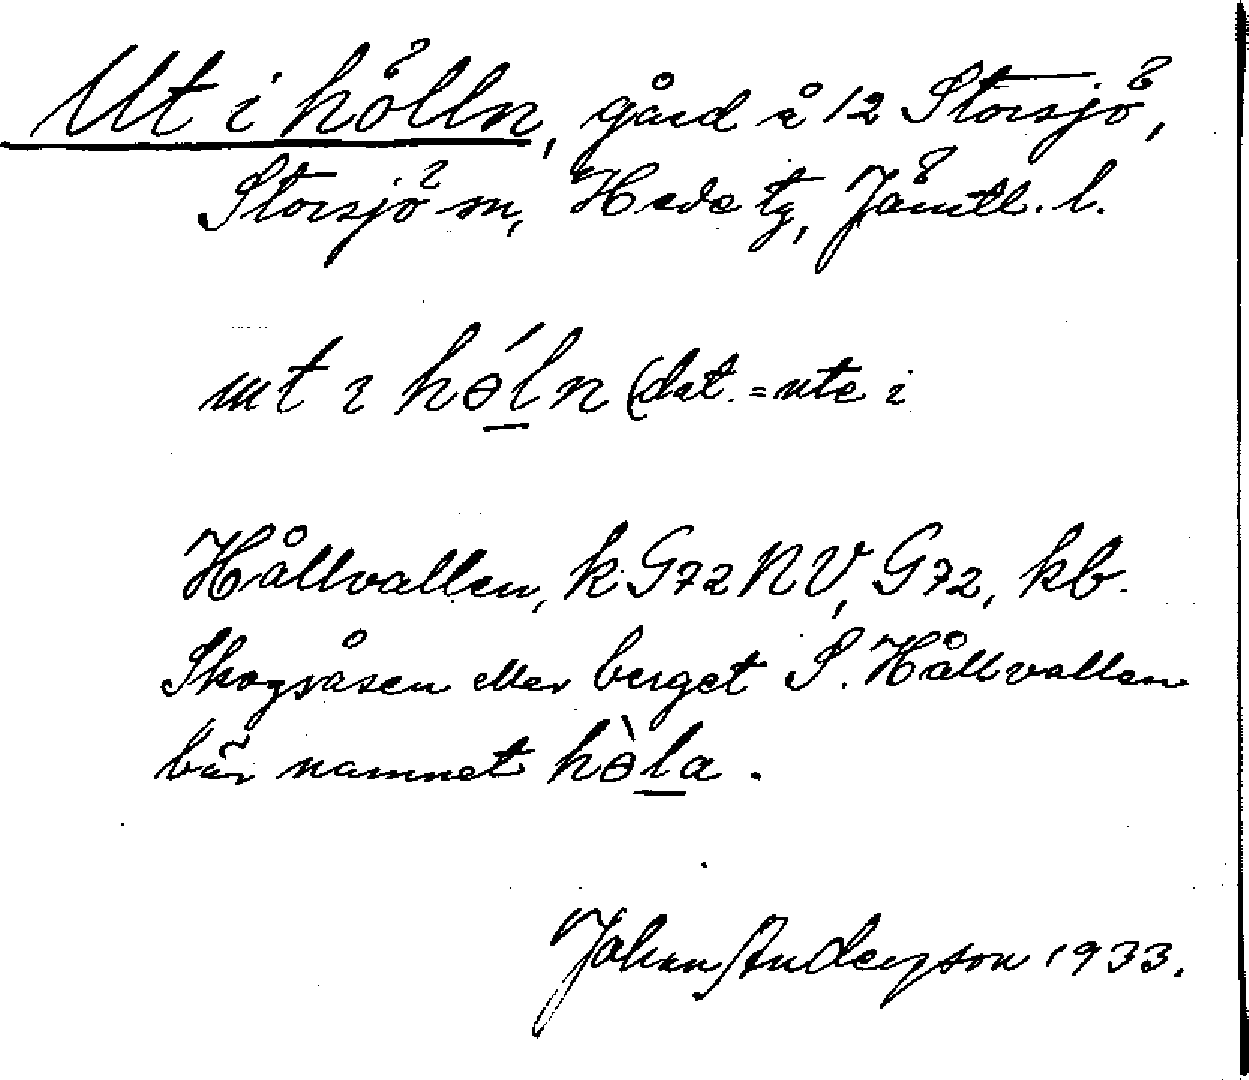 Ut i hölln, gård å 12 Storsjö,
Storsjö sn, Hede tg, Jämtl. l.
ut ɩ hə́ln (dat. = ute i
Hållvallen, k G72 NV, G72, kb.
Skogsåsen eller berget S. Hållvallen
bär namnet hə̀la.
Johan Anderson 1933.